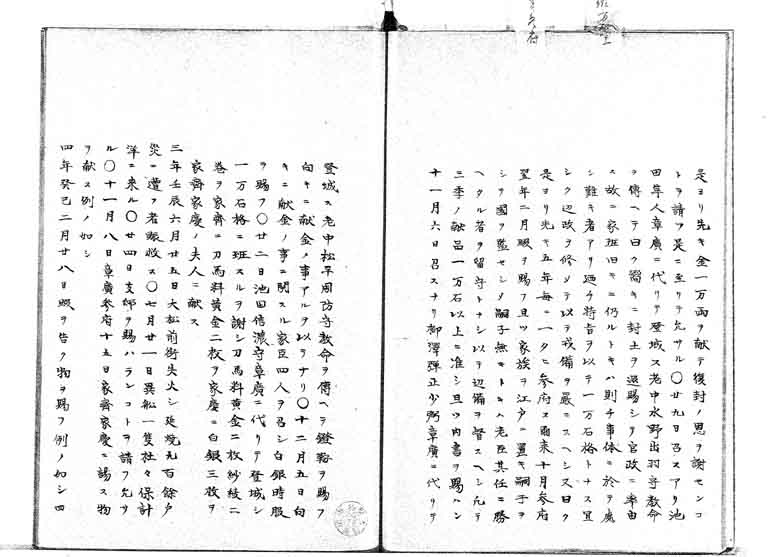 是ヨリ先キ金一万両ヲ献テ復封ノ恩ヲ謝センコ
トヲ請フ是ニ至リテ允サル〇廿九日召スアリ池
田隼人章廣ニ代リテ登城ス老中水野出羽守教命
ヲ傳ヘテ曰ク嚮キニ封土ヲ還賜シタ官政ニ率由
ス故ニ家班旧キニ仍ルトキハ則チ事体ニ於テ處
シ難キ者アリ廼ケ特旨ヲ以テ一万石格トナス宜
シク辺政ヲ修メテ以テ戎備ヲ嚴ニスヘシ又曰ク
是ヨリ先キ五年毎ニ一タヒ参府ス爾来十月参府
翌年二月暇ヲ賜フ且ツ家族ヲ江戸ニ置キ嗣子ヲ
シテ國ヲ監セシメ嗣子無キトキハ老臣其任ニ勝
ヘタル者ヲ留守トナシ以テ辺備ヲ督スヘシ凡テ
二季ノ献品一万石以上ニ准シ且ツ内書ヲ賜ハン
十一月六日召スナリ柳澤弾正少弼章廣ニ代リテ
登城ス老中松平周防守教命ヲ傳ヘテ鐙鞍ヲ賜フ
向キニ献金ノ事アルヲ以テナリ〇十二月五日向
キニ献金ノ事ニ関スル家臣四人ヲ召シ白銀時服
ヲ賜フ〇廿二日池田信濃守章廣ニ代リテ登城シ
一万石格ニ班スルヲ謝シ刀馬料黄金二枚紗綾二
巻ヲ家齊ニ刀馬料黄金二枚ヲ家慶ニ白銀三枚ヲ
家齊家慶ノ夫人ニ献ス
三年壬辰六月廿五日大松前街失火シ延焼九百餘戸
災ニ遭フ者賑救ス〇七月廿一日異舩一隻杜々保計
洋ニ来ル〇廿四日支
ル〇十一月八日章廣参府十五日家齊家慶ニ謁ス物
ヲ献ス例ノ如シ
四年癸巳二月廿八日暇ヲ告ク物ヲ賜フ例ノ如シ四